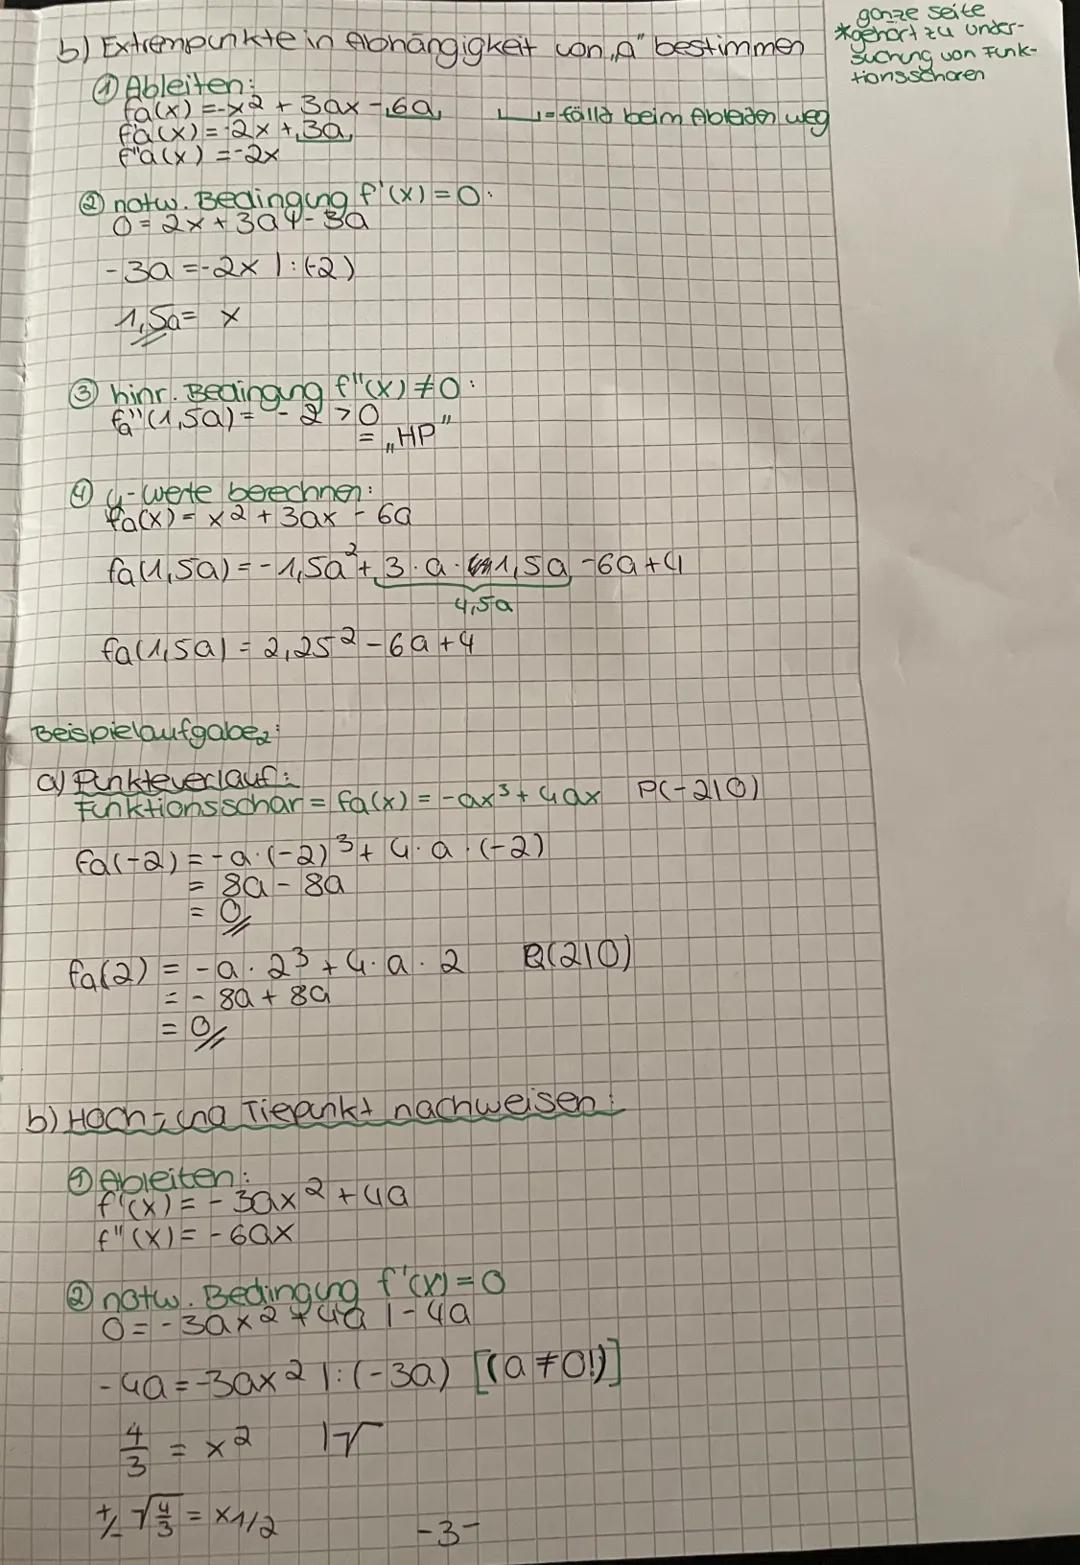 ganze seite
*gehört zu Unter-
suchung von Funk-
tionsscharen
b) Extrempunkte in Abhängigkeit von „a" bestimmen
① Ableiten:
fa(x) = -x² + 3ax - 6a
f'a(x) = -2x + 3a
f"a(x) = -2x
= fällt beim Ableiten weg
② notw. Bedingung f'(x) = 0:
0 = 2x + 3a | - 3a
-3a = -2x | : (-2)
1,5a = x
③ hinr. Bedingung f"(x) ≠ 0:
fa"(1,5a) = - 2 > 0
= „HP"
④ y-werte berechnen:
fa(x) = x² + 3ax - 6a
fa(1,5a) = -1,5a² + 3 · a · 1,5a - 6a + 4
4,5a
fa(1,5a) = 2,25² - 6a + 4
Beispielaufgabe 2:
a) Punkteverlauf:
Funktionsschar = fa(x) = -ax³ + 4ax P(-2|0)
fa(-2) = -a · (-2)³ + 4 · a · (-2)
= 8a - 8a
= 0
fa(2) = -a · 2³ + 4 · a · 2 Q(2|0)
= - 8a + 8a
= 0
b) Hoch- und Tiepunkt nachweisen:
① Ableiten:
f'(x) = - 3ax² + 4a
f"(x) = - 6ax
② notw. Bedingung f'(x) = 0
0 = - 3ax² + 4a | - 4a
-4a = -3ax² | : (-3a) [(a ≠ 0!)]
4/3 = x² |√
+/- √4/3 = x1/2
-3-